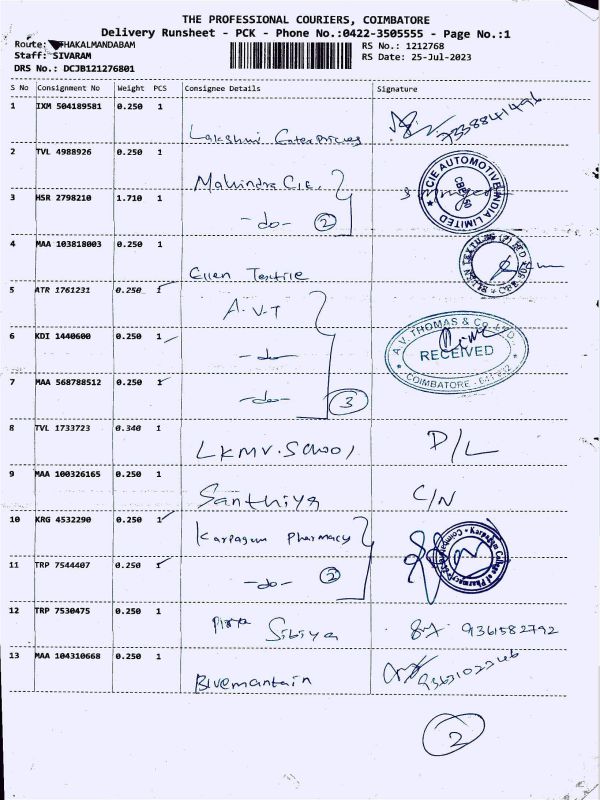 THE PROFESSIONAL COURIERS, COIMBATORE
Delivery Runsheet - PCK - Phone No.:0422-3505555 - Page No.:1
Route: THAKALMANDABAM RS No.: 1212768
Staff: SIVARAM RS Date: 25-Jul-2023
DRS No.: DCJB121276801
S No Consignment No Weight PCS Consignee Details Signature
1 IXM 504189581 0.250 1 Lakshmi Enterprises 7338841496
2 TVL 4988926 0.250 1 Mahindra C.I.E. CIE AUTOMOTIVE INDIA LIMITED
3 HSR 2798210 1.710 1 -do- 2
4 MAA 103818003 0.250 1 Ellen Textile
5 ATR 1761231 0.250 1 A.V.T
6 KDI 1440600 0.250 1 -do- A.V. THOMAS & Co. LTD. RECEIVED COIMBATORE
7 MAA 568788512 0.250 1 -do- 3
8 TVL 1733723 0.340 1 LKMV.School D/L
9 MAA 100326165 0.250 1 Santhiya C/N
10 KRG 4532290 0.250 1 Karpagam Pharmacy Karpagam College of Pharmacy
11 TRP 7544407 0.250 1 -do- 2
12 TRP 7530475 0.250 1 Sibiya 9361582792
13 MAA 104310668 0.250 1 Bluemantain
2